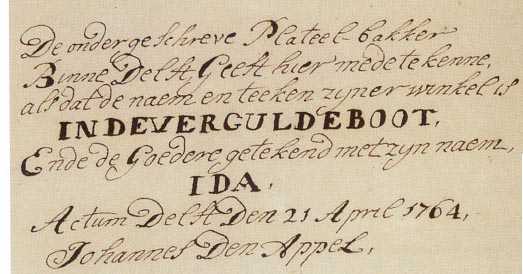 De ondergeschreve Plateel-bakker
Binne Delft, Geeft hier mede te kenne,
als dat de naem en teeken zyner winkel is
IN DE VERGULDE BOOT,
Ende de Goedere getekend met zyn naem,
IDA,
Actum Delft Den 21 April 1764,
Johannes Den Appel,